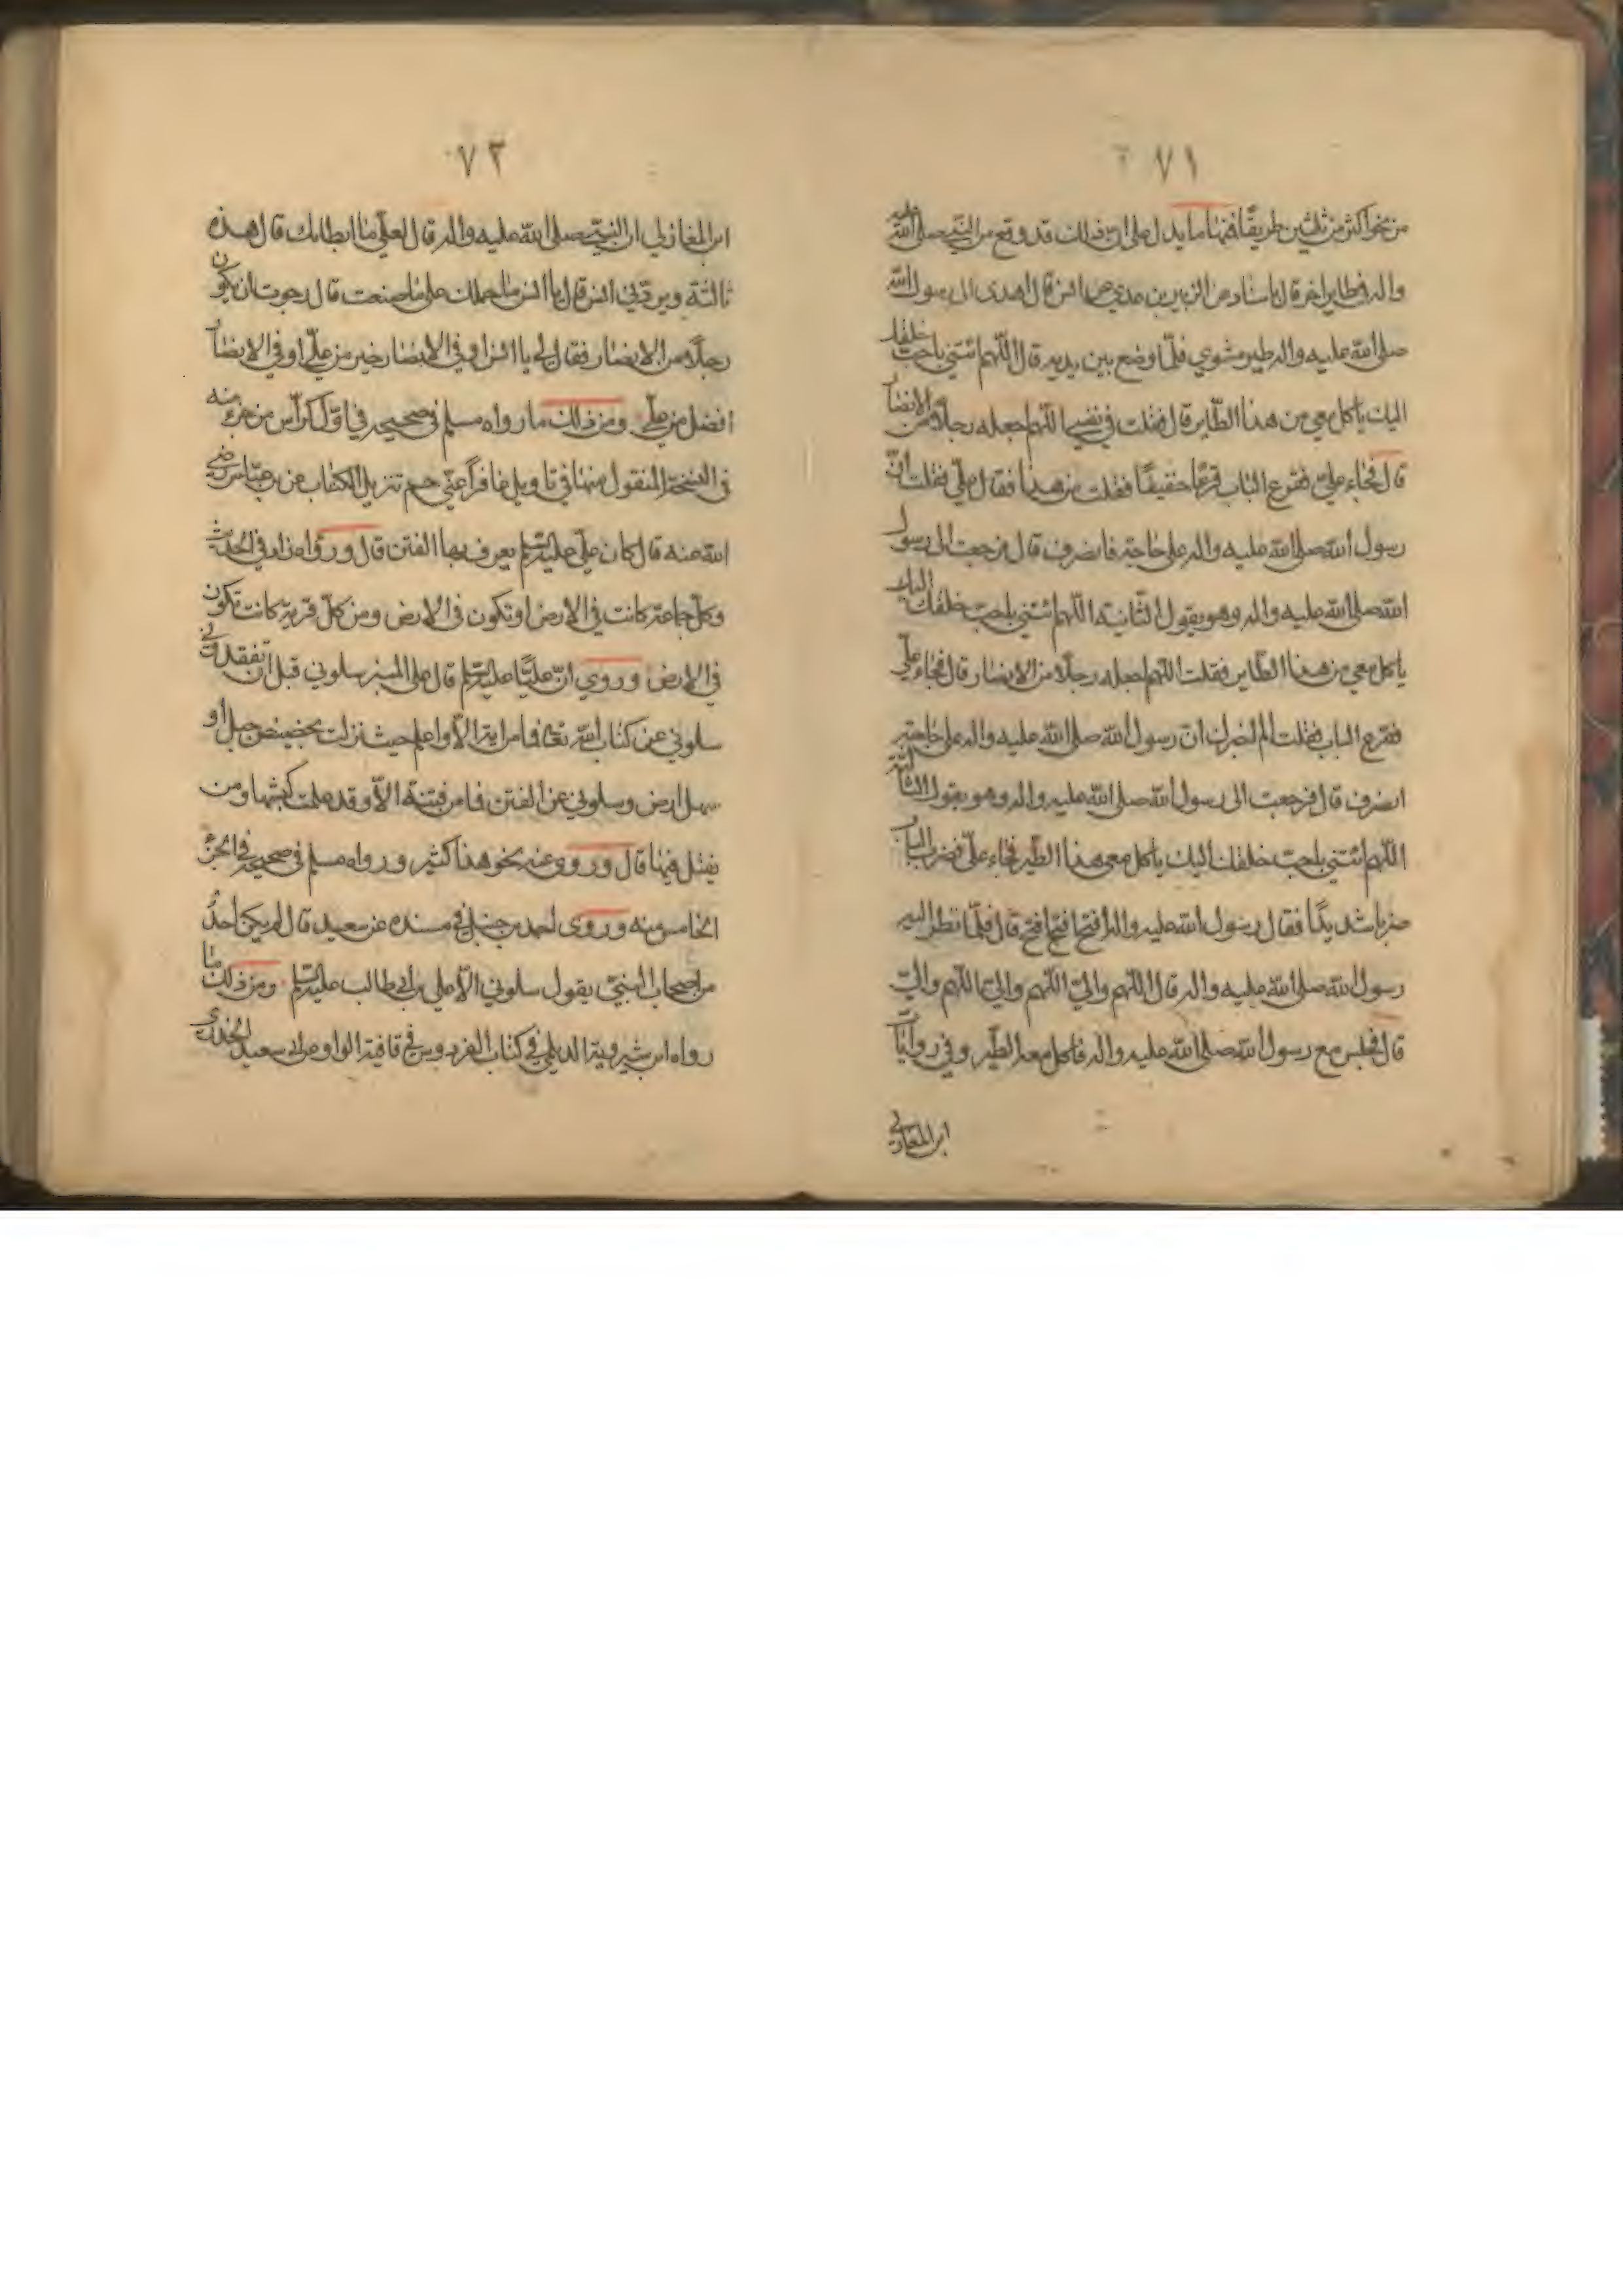 ٧١
من نحو اكثر من ثلثين طريقًا فمنها ما يدل على ان ذلك قد وقع من النبي صلى الله عليه
واله في طاير اخر قال باسناده عن الزبير بن عدي عن انس قال اهدى الى رسول الله
صلى الله عليه واله طير مشوي فلمّا وضع بين يديه قال اللّهم ائتني باحبّ خلقك
اليك ياكل معي من هذا الطّاير قال فقلت في نفسي اللّهم اجعله رجلًا من الانصار
قال فجاء عليّ فقرع الباب قرعًا خفيفًا فقلت من هذا فقال عليّ فقلت انّ
رسول الله صلى الله عليه واله على حاجة فانصرف قال فرجعت الى رسول
الله صلى الله عليه واله وهو يقول الثّانية اللّهم ائتني باحبّ خلقك اليك
ياكل معي من هذا الطّاير فقلت اللّهم اجعله رجلًا من الانصار قال فجاء عليّ
فقرع الباب فقلت الم اخبرك انّ رسول الله صلى الله عليه واله على حاجة
انصرف قال فرجعت الى رسول الله صلى الله عليه واله وهو يقول الثّالثة
اللّهم ائتني باحبّ خلقك اليك ياكل معي هذا الطّير فجاء عليّ فضرب الباب
ضربا شديدًا فقال رسول الله عليه واله افتح افتح افتح قال فلمّا نظر اليه
رسول الله صلى الله عليه واله قال اللّهم واليّ اللّهم واليّ اللّهم واليّ
قال فجلس مع رسول الله صلى الله عليه واله فاكل معه الطّير وفي روايات
ابن المغازلي
٧٢
ابن المغازلي ان النبيّ صلى الله عليه واله قال لعليّ ما ابطابك قال هذه
ثالثة ويردّني انس قال يا انس ما حملك على ما صنعت قال رجوت ان يكون
رجلًا من الانصار فقال لي يا انس اوفي الانصار خير من عليّ اوفي الانصار
افضل من عليّ ومن ذلك ما رواه مسلم في صحيحه في اوّل كرّاس من جزء منه
في النسخة المنقول منها في تاويل غافر اعني حم تنزيل الكتاب عن بن عبّاس رضي
الله عنه قال كان عليّ عليه السّلم يعرف بها الفتن قال ورواه زاد في الحديث
وكل جماعة كانت في الارض او تكون في الارض ومن كلّ قرية كانت او تكون
في الارض وروي انّ عليًّا عليه السّلم قال على المنبر سلوني قبل ان تفقدوني
سلوني عن كتاب الله تعالى فما من اية الّا واعلم حيث نزلت بحضيض جبل او
سهل ارض وسلوني عن الفتن فما من فتنة الّا وقد علمت كبشها ومن
يقتل فيها قال وروى عنه نحو هذا كثير ورواه مسلم في صحيحه في الجزء
الخامس منه وروى احمد بن حنبل في مسنده عن سعيد قال لم يكن احدٌ
من اصحاب النبيّ يقول سلوني الّا علي بن ابي طالب عليه السّلم ومن ذلك ما
رواه ابن شيروية الديلمي في كتاب الفردوس في قافية الواو عن ابي سعيد الخدري